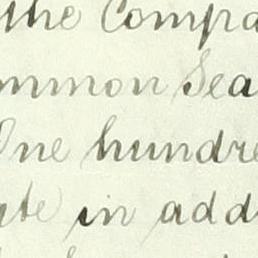 the Compa
mmon Sea
One hundre
ate in add